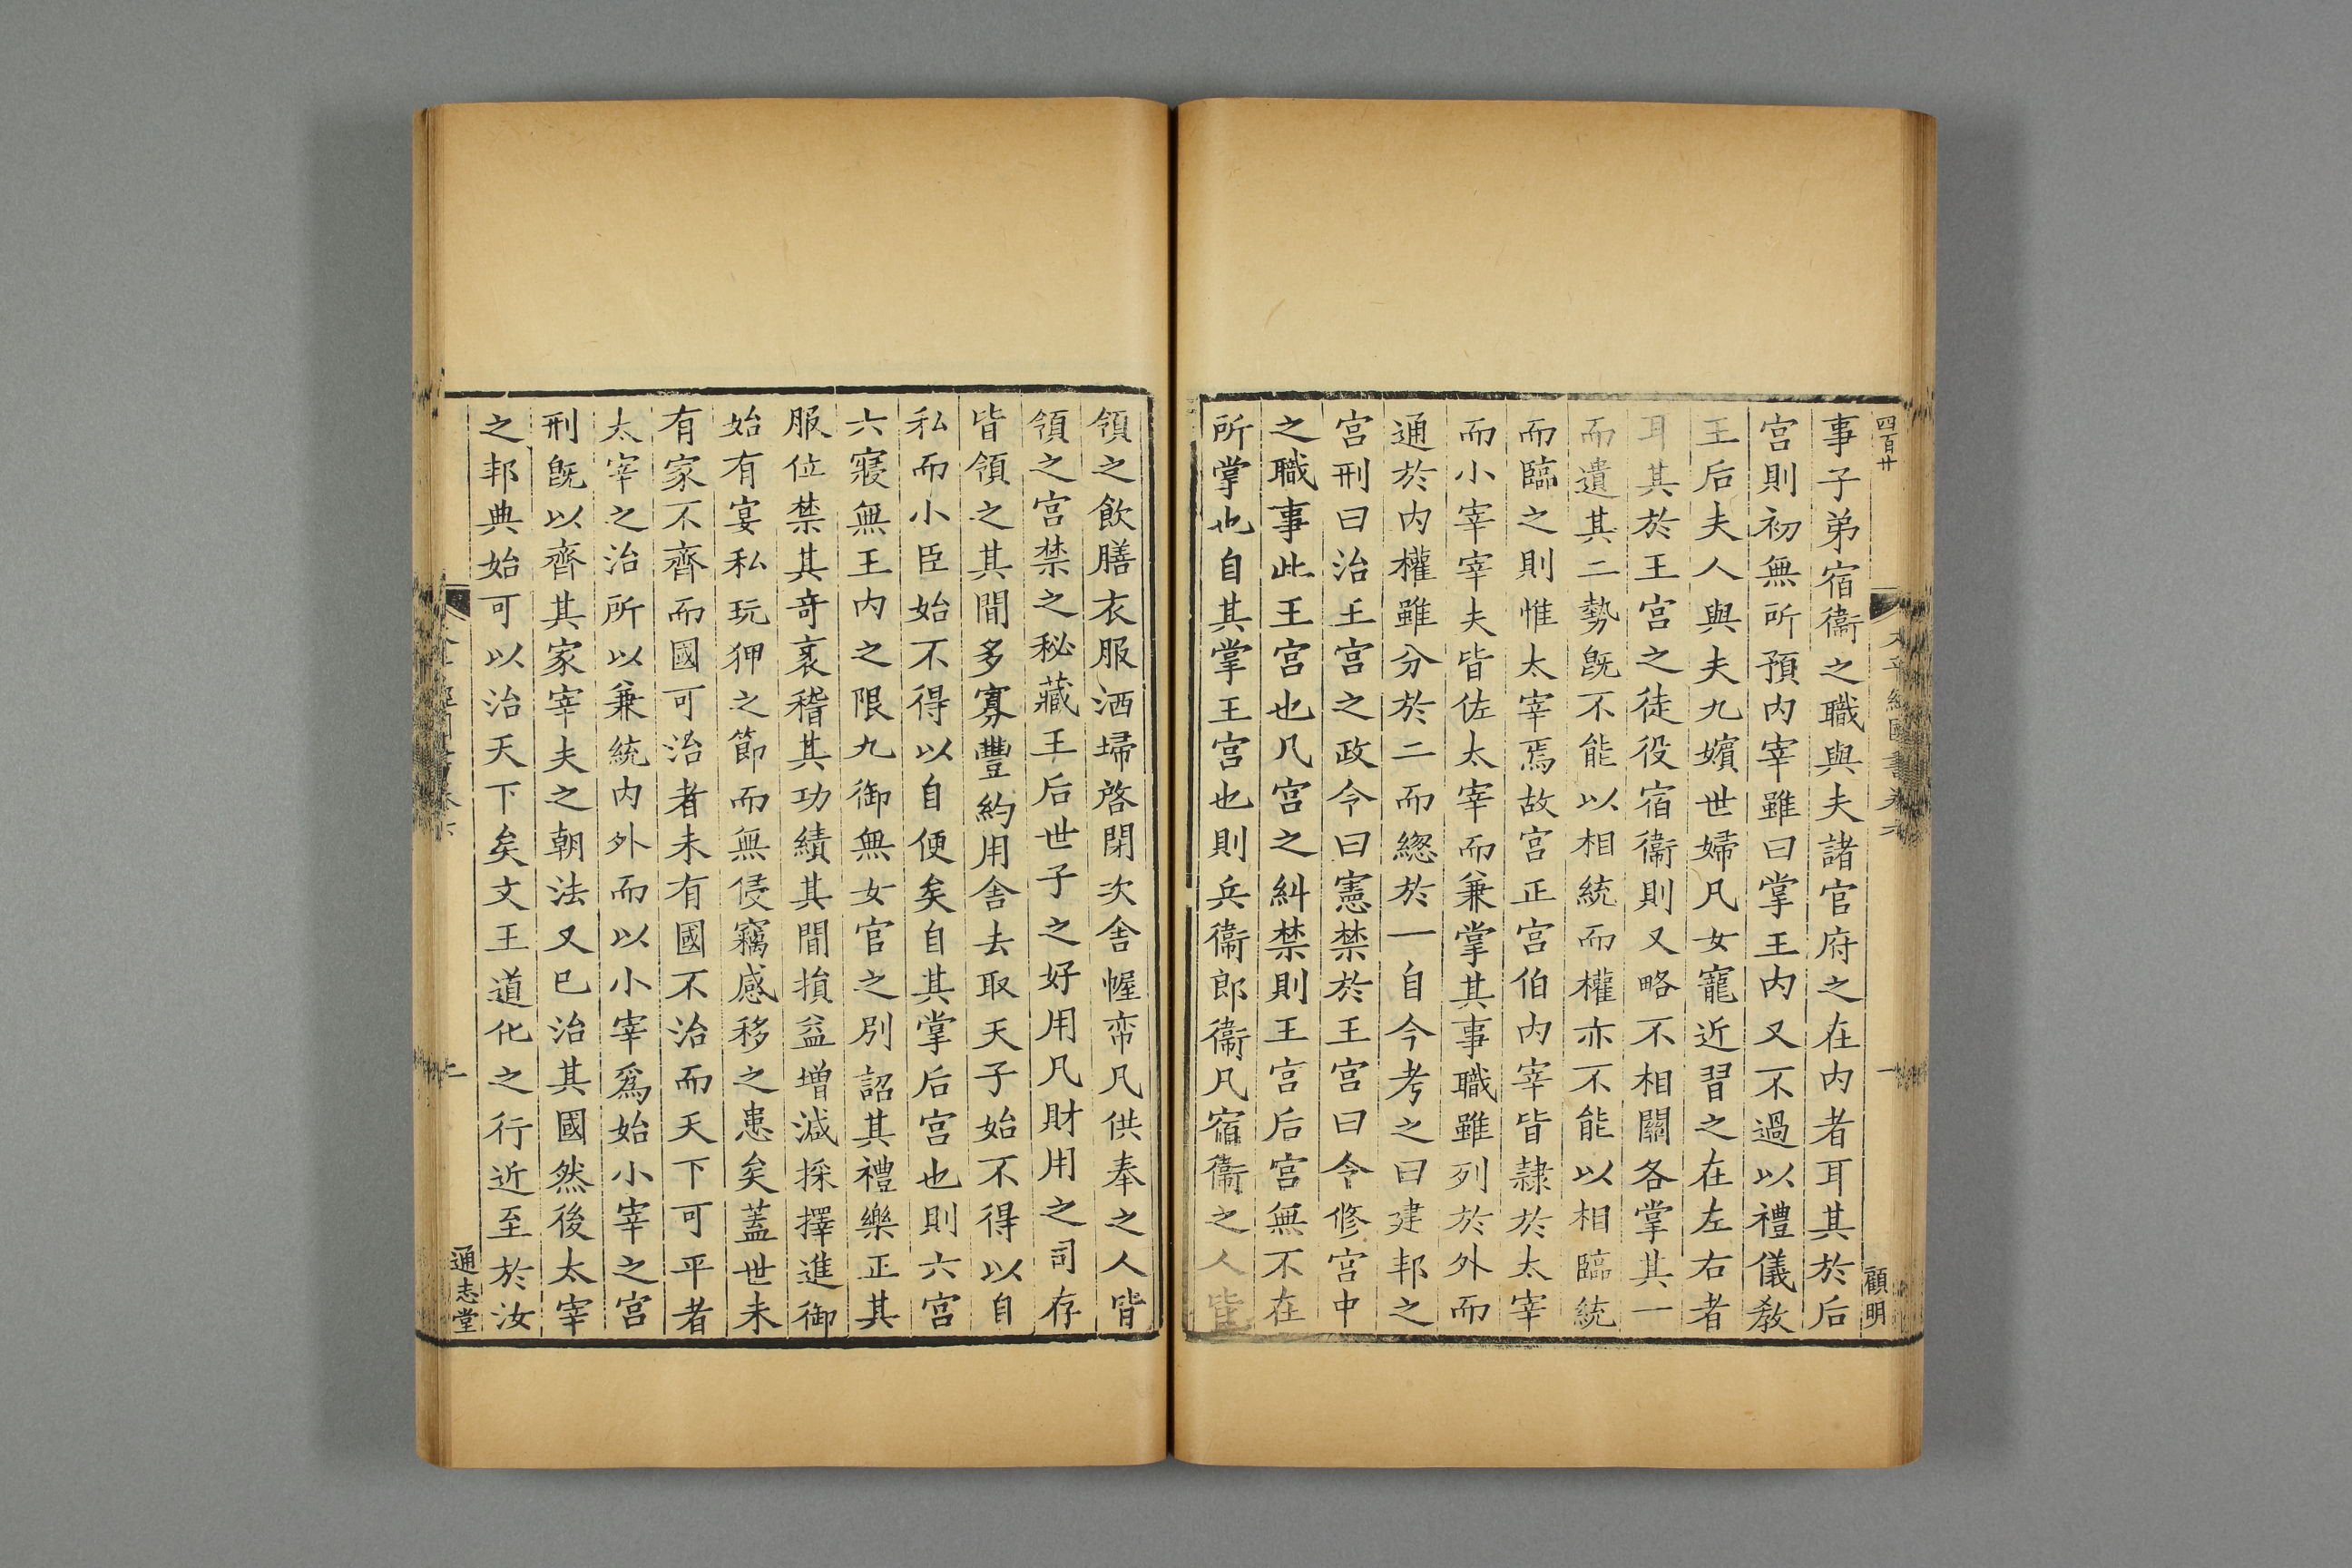 四百廿
顧明
事子弟宿衞之職與夫諸官府之在内者耳其於后
宫則初無所預内宰雖曰掌王内又不過以禮儀敎
王后夫人與夫九嬪世婦凡女寵近習之在左右者
耳其於王宫之徒役宿衞則又略不相關各掌其一
而遺其二勢旣不能以相統而權亦不能以相臨統
而臨之則惟太宰焉故宫正宫伯内宰皆隷於太宰
而小宰宰夫皆佐太宰而兼掌其事職雖列於外而
通於内權雖分於二而緫於一自今考之曰建邦之
宫刑曰治王宫之政令曰憲禁於王宫曰令修宫中
之職事此王宫也凡宫之糾禁則王宫后宫無不在
所掌也自其掌王宫也則兵衞郎衞凡宿衞之人皆
領之飲膳衣服洒埽啓閉次舍幄帟凡供奉之人皆
領之宫禁之秘藏王后世子之好用凡財用之司存
皆領之其間多寡豐約用舍去取天子始不得以自
私而小臣始不得以自便矣自其掌后宫也則六宫
六寢無王内之限九御無女官之别詔其禮樂正其
服位禁其竒衺稽其功績其間損益增減採擇進御
始有宴私玩狎之節而無侵竊感移之患矣蓋世未
有家不齊而國可治者未有國不治而天下可平者
太宰之治所以兼統内外而以小宰爲始小宰之宫
刑旣以齊其家宰夫之朝法又已治其國然後太宰
之邦典始可以治天下矣文王道化之行近至於汝
通志堂